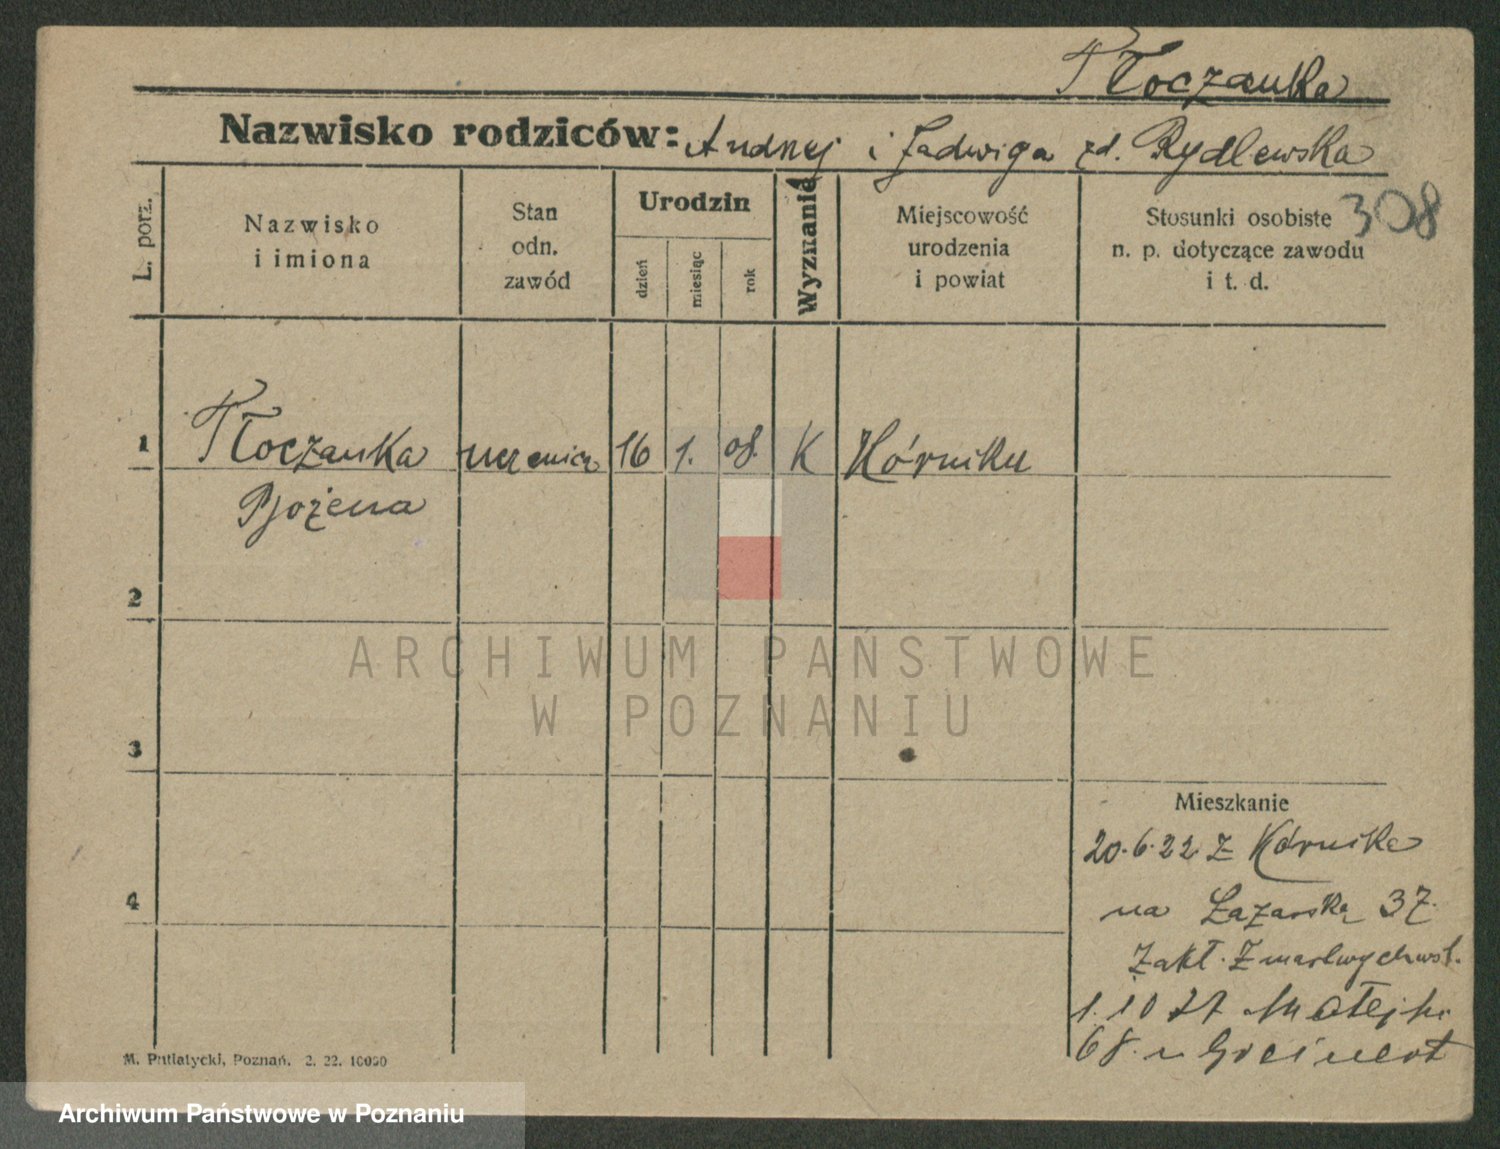 Tłoczanka
Nazwisko rodziców: Andrzej i Jadwiga zd. Rydlewska
308
L. porz.
Nazwisko
i imiona
Stan
odn.
zawód
Urodzin
dzień
miesiąc
rok
Wyznanie
Miejscowość
urodzenia
i powiat
Stosunki osobiste
n. p. dotyczące zawodu
i t. d.
1
Tłoczanka uczenica 16 1. 08. K Kórniku
Bożena
2
3
4
ARCHIWUM PAŃSTWOWE
W POZNANIU
Mieszkanie
20.6.22 z Kórnika
na Łazarską 37.
Zakł. Zmartwychwst.
1.10 27 Matejki
68. u
M. Putiatycki, Poznań. 2. 22. 10000
Archiwum Państwowe w Poznaniu